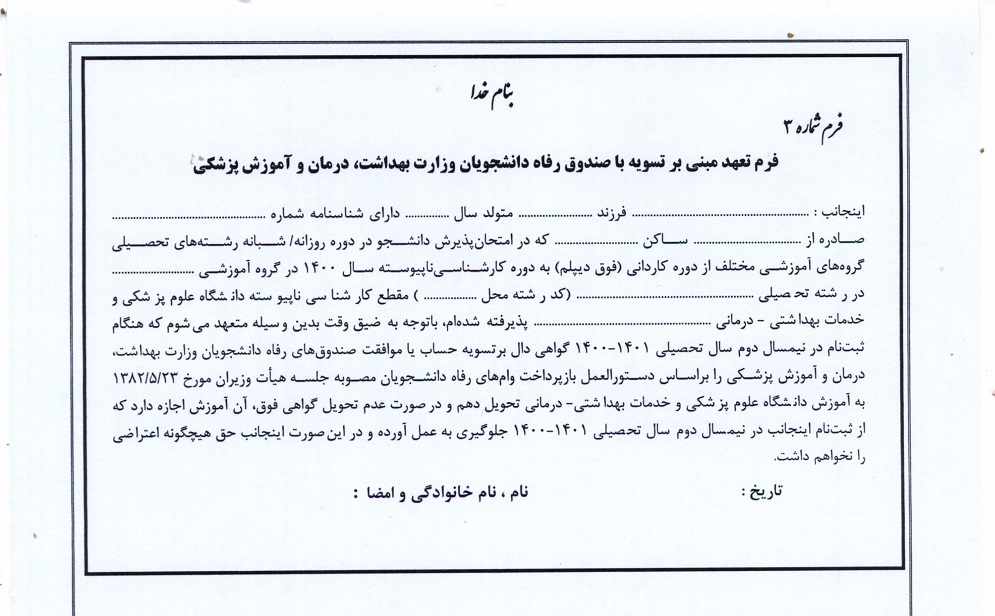 بنام خدا
فرم شماره ۳
فرم تعهد مبنی بر تسویه با صندوق رفاه دانشجویان وزارت بهداشت، درمان و آموزش پزشکی
اینجانب : .................... فرزند .................... متولد سال ............. دارای شناسنامه شماره ....................
صادره از .................... ساکن .................... که در امتحان‌پذیرش دانشجو در دوره روزانه/ شبانه رشته‌های تحصیلی
گروه‌های آموزشی مختلف از دوره کاردانی (فوق دیپلم) به دوره کارشناسی‌ناپیوسته سال ۱۴۰۰ در گروه آموزشی ....................
در رشته تحصیلی .................... (کد رشته محل ................ ) مقطع کارشناسی ناپیوسته دانشگاه علوم پزشکی و
خدمات بهداشتی – درمانی .................... پذیرفته شده‌ام، باتوجه به ضیق وقت بدین وسیله متعهد می‌شوم که هنگام
ثبت‌نام در نیمسال دوم سال تحصیلی ۱۴۰۱-۱۴۰۰ گواهی دال برتسویه حساب یا موافقت صندوق‌های رفاه دانشجویان وزارت بهداشت،
درمان و آموزش پزشکی را براساس دستورالعمل بازپرداخت وام‌های رفاه دانشجویان مصوبه جلسه هیأت وزیران مورخ ۱۳۸۲/۵/۲۳
به آموزش دانشگاه علوم پزشکی و خدمات بهداشتی- درمانی تحویل دهم و در صورت عدم تحویل گواهی فوق، آن آموزش اجازه دارد که
از ثبت‌نام اینجانب در نیمسال دوم سال تحصیلی ۱۴۰۱-۱۴۰۰ جلوگیری به عمل آورده و در این‌صورت اینجانب حق هیچگونه اعتراضی
را نخواهم داشت.
تاریخ : نام ، نام خانوادگی و امضا :